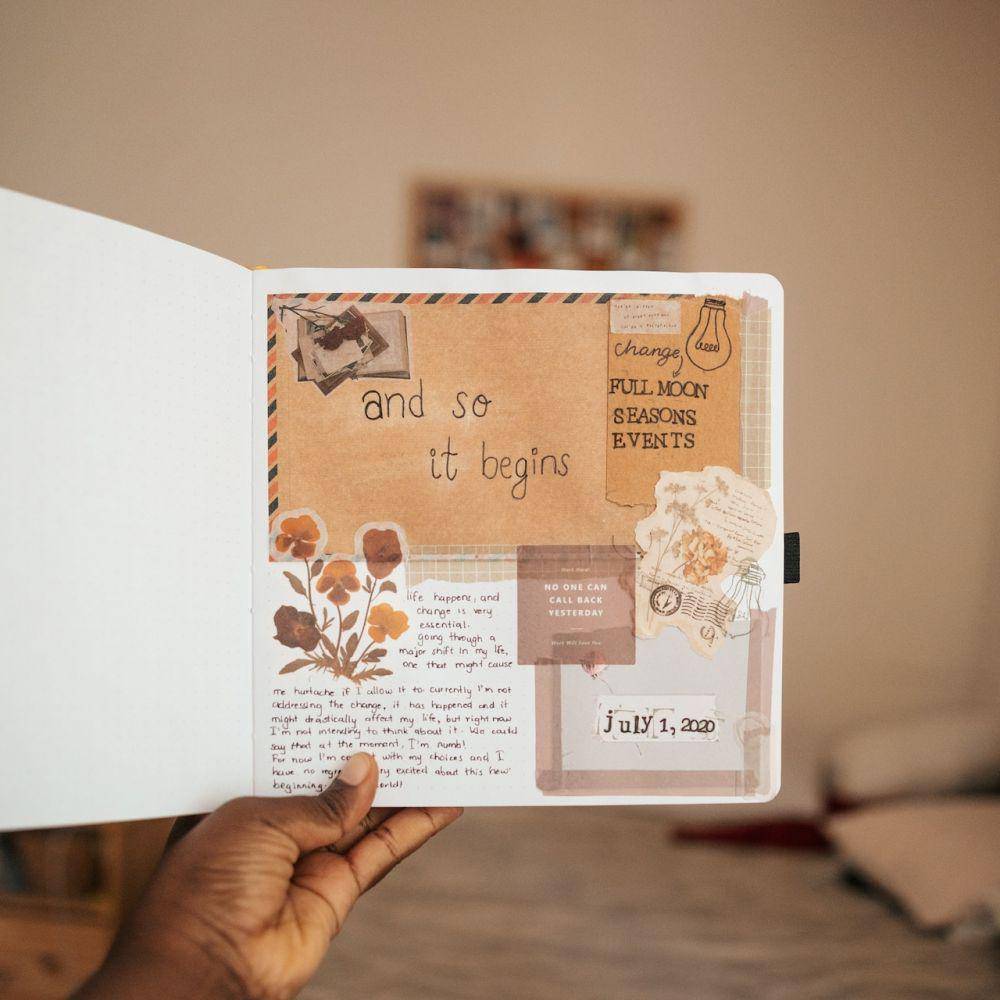 and so
it begins
change,
FULL MOON
SEASONS
EVENTS
NO ONE CAN
CALL BACK
YESTERDAY
Work Will Save You
life happens, and
change is very
essential.
going through a
major shift in my life,
one that might cause
me hurtache if I allow it to. Currently I'm not
addressing the change, it has happened and it
might drastically affect my life, but right now
I'm not intending to think about it. We could
say that at the moment, I'm numb!
For now I'm with my choices and I
have no excited about this new
beginning. world!
july 1, 2020